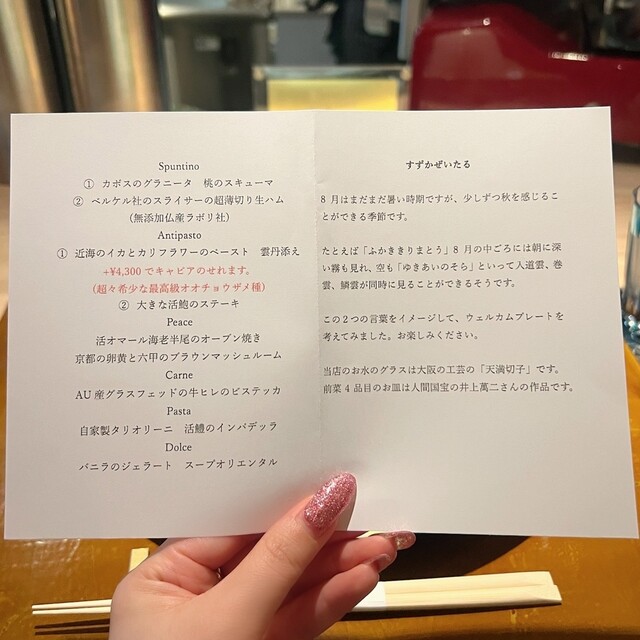 Spuntino
① カボスのグラニータ 桃のスキューマ
② ベルケル社のスライサーの超薄切り生ハム
（無添加仏産ラボリ社）
Antipasto
① 近海のイカとカリフラワーのペースト 雲丹添え
+¥4,300でキャビアのせれます。
（超々希少な最高級オオチョウザメ種）
② 大きな活鮑のステーキ
Peace
活オマール海老半尾のオーブン焼き
京都の卵黄と六甲のブラウンマッシュルーム
Carne
AU産グラスフェッドの牛ヒレのビステッカ
Pasta
自家製タリオリーニ 活鱧のインパデッラ
Dolce
バニラのジェラート スープオリエンタル
すずかぜいたる
8月はまだまだ暑い時期ですが、少しずつ秋を感じるこ
とができる季節です。
たとえば「ふかききりまとう」8月の中ごろには朝に深
い霧も見れ、空も「ゆきあいのそら」といって入道雲、巻
雲、鱗雲が同時に見ることができるそうです。
この2つの言葉をイメージして、ウェルカムプレートを
考えてみました。お楽しみください。
当店のお水のグラスは大阪の工芸の「天満切子」です。
前菜4品目のお皿は人間国宝の井上萬二さんの作品です。